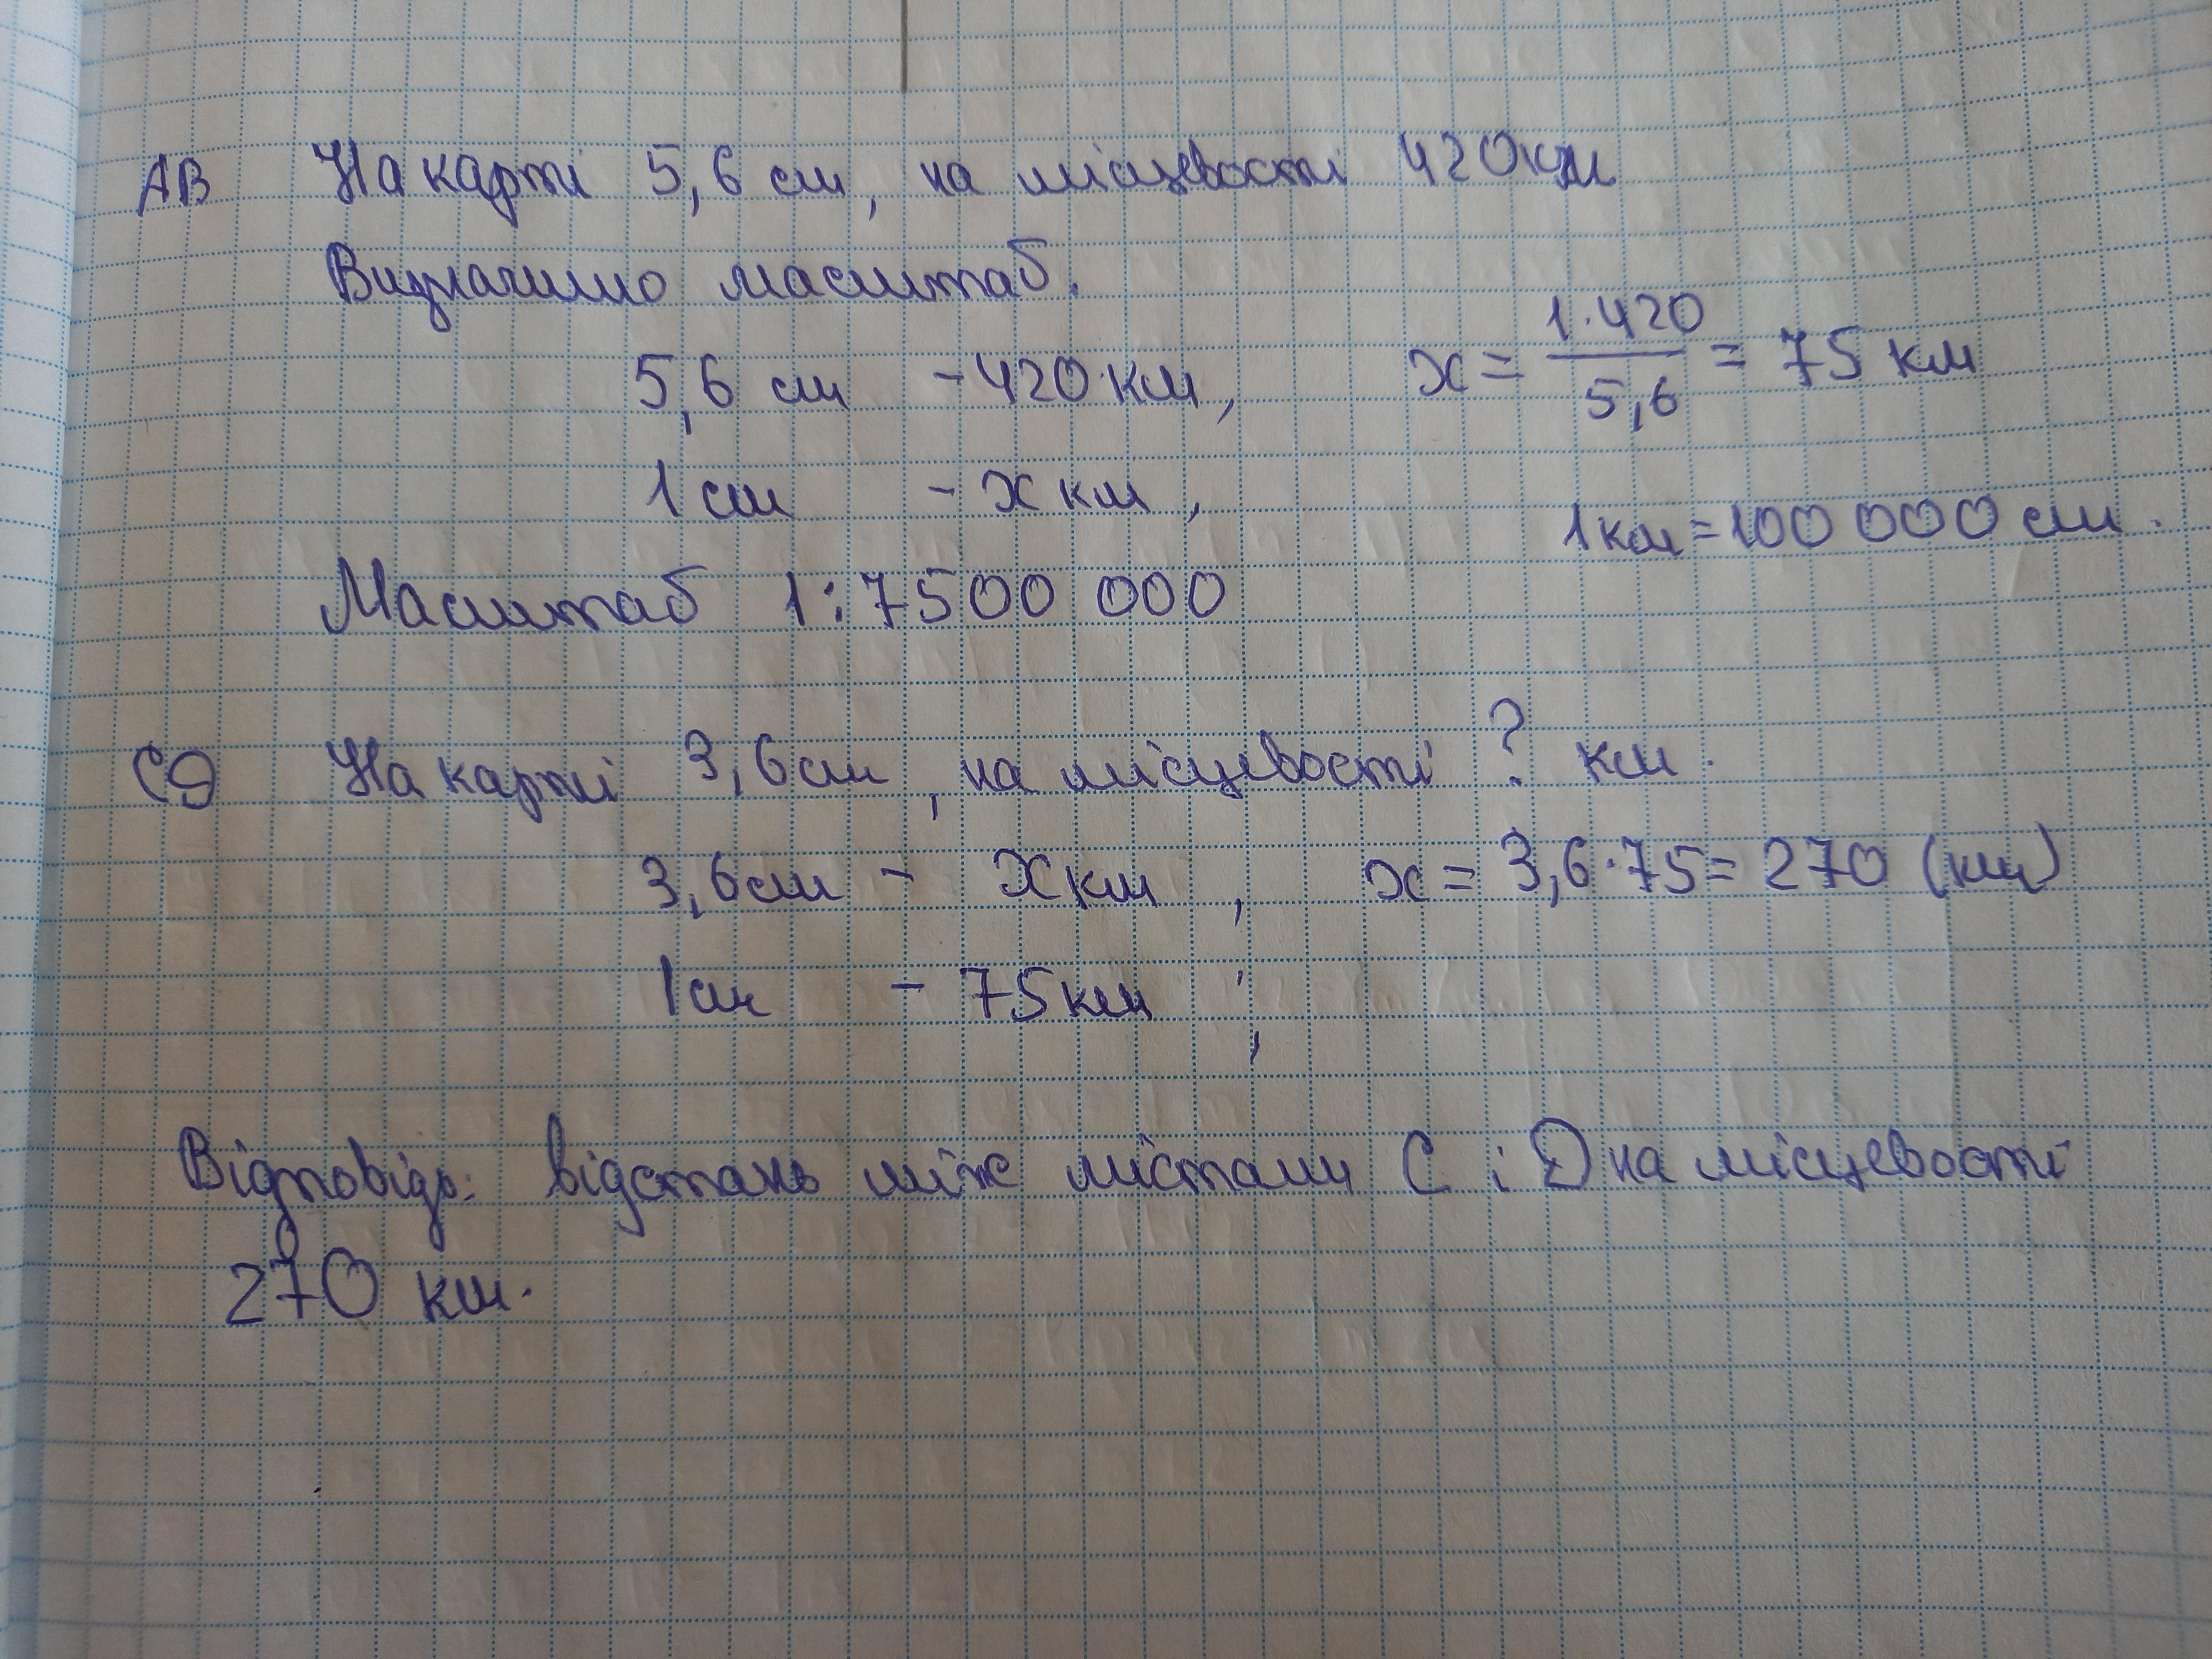 AB На карті 5,6 см, на місцевості 420км
Визначимо масштаб.
5,6 см - 420 км, x = 1·420 / 5,6 = 75 км
1 см - x км, 1км = 100 000 см.
Масштаб 1:7500 000
CD На карті 3,6см, на місцевості ? км.
3,6см - x км, x = 3,6·75 = 270 (км)
1см - 75км ;
Відповідь: відстань між містами C і D на місцевості
270 км.